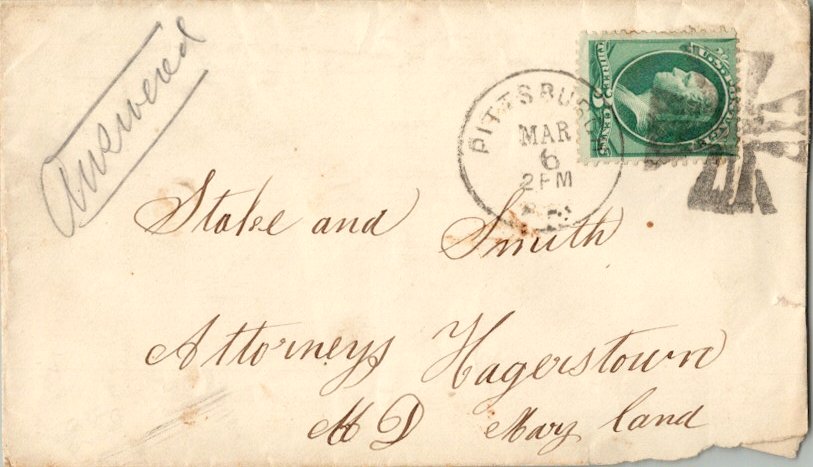 Answered
PITTSBURG
MAR
6
2PM
U.S. POSTAGE
THREE 3 CENTS
Stake and Smith
Attorneys Hagerstown
MD Mary land